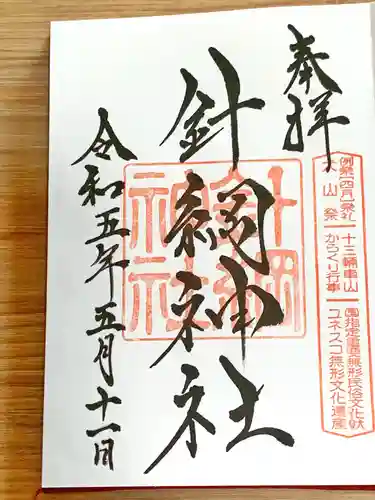 奉拝
例祭(四月)祭礼
犬山祭
十三輛車山
からくり行事
國指定重要無形民俗文化財
ユネスコ無形文化遺産
針綱神社
針綱
神社
令和五年五月十一日